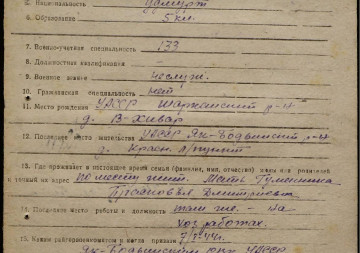 5. Национальность удмурт
6. Образование 5 кл.
7. Военно-учетная специальность 133
8. Должностная квалификация —
9. Военное звание неслуж.
10. Гражданская специальность нет
11. Место рождения УАССР Шарканский р-н
д. В-Кивар
12. Постоянное место жительства УАССР Як-Бодьинский р-н
д. Красн.
13. Где проживает в настоящее время семья (фамилия, имя, отчество) жены или родителей
и точный их адрес по месту жит. Мать
Дмитриевна
14. Последнее место работы и должность там же — на
хоз работах.
15. Каким райгорвоенкоматом и когда призван 44г.
Як-Бодьинским УАССР